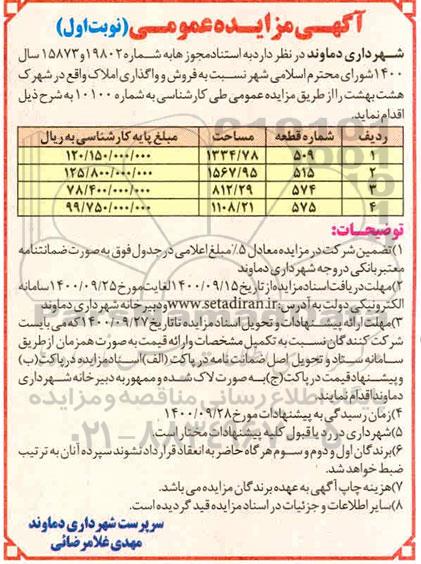 آگهی مزایده عمومی (نوبت اول)
شهرداری دماوند در نظر دارد به استناد مجوزها به شماره ۱۹۸۰۲ و ۱۵۸۷۳ سال
۱۴۰۰ شورای محترم اسلامی شهر نسبت به فروش و واگذاری املاک واقع در شهرک
هشت بهشت را از طریق مزایده عمومی طی کارشناسی به شماره ۱۰۱۰۰ به شرح ذیل
اقدام نماید.
ردیف شماره قطعه مساحت مبلغ پایه کارشناسی به ریال
۱ ۵۰۹ ۱۳۳۴/۷۸ ۱۲۰/۱۵۰/۰۰۰/۰۰۰
۲ ۵۱۵ ۱۵۶۷/۹۵ ۱۲۵/۸۰۰/۰۰۰/۰۰۰
۳ ۵۷۴ ۸۱۲/۲۹ ۷۸/۴۰۰/۰۰۰/۰۰۰
۴ ۵۷۵ ۱۱۰۸/۲۱ ۹۹/۷۵۰/۰۰۰/۰۰۰
توضیحات:
۱) تضمین شرکت در مزایده معادل ۵٪ مبلغ اعلامی در جدول فوق به صورت ضمانتنامه
معتبر بانکی در وجه شهرداری دماوند
۲) مهلت دریافت اسناد مزایده از تاریخ ۱۴۰۰/۰۹/۱۵ لغایت مورخ ۱۴۰۰/۰۹/۲۵ سامانه
الکترونیکی دولت به آدرس: www.setadiran.ir و دبیرخانه شهرداری دماوند
۳) مهلت ارائه پیشنهادات و تحویل اسناد مزایده تا تاریخ ۱۴۰۰/۰۹/۲۷ که می بایست
شرکت کنندگان نسبت به تکمیل مشخصات و ارائه قیمت به صورت همزمان از طریق
سامانه ستاد و تحویل اصل ضمانت نامه در پاکت (الف) اسناد مزایده در پاکت (ب)
و پیشنهاد قیمت در پاکت (ج) به صورت لاک شده و ممهور به دبیرخانه شهرداری
دماوند اقدام نمایند
۴) زمان رسیدگی به پیشنهادات مورخ ۱۴۰۰/۰۹/۲۸
۵) شهرداری در رد یا قبول کلیه پیشنهادات مختار است.
۶) برندگان اول و دوم و سوم هرگاه حاضر به انعقاد قرارداد نشوند سپرده آنان به ترتیب
ضبط خواهد شد.
۷) هزینه چاپ آگهی به عهده برندگان مزایده می باشد.
۸) سایر اطلاعات و جزئیات در اسناد مزایده قید گردیده است.
سرپرست شهرداری دماوند
مهدی غلامرضائی